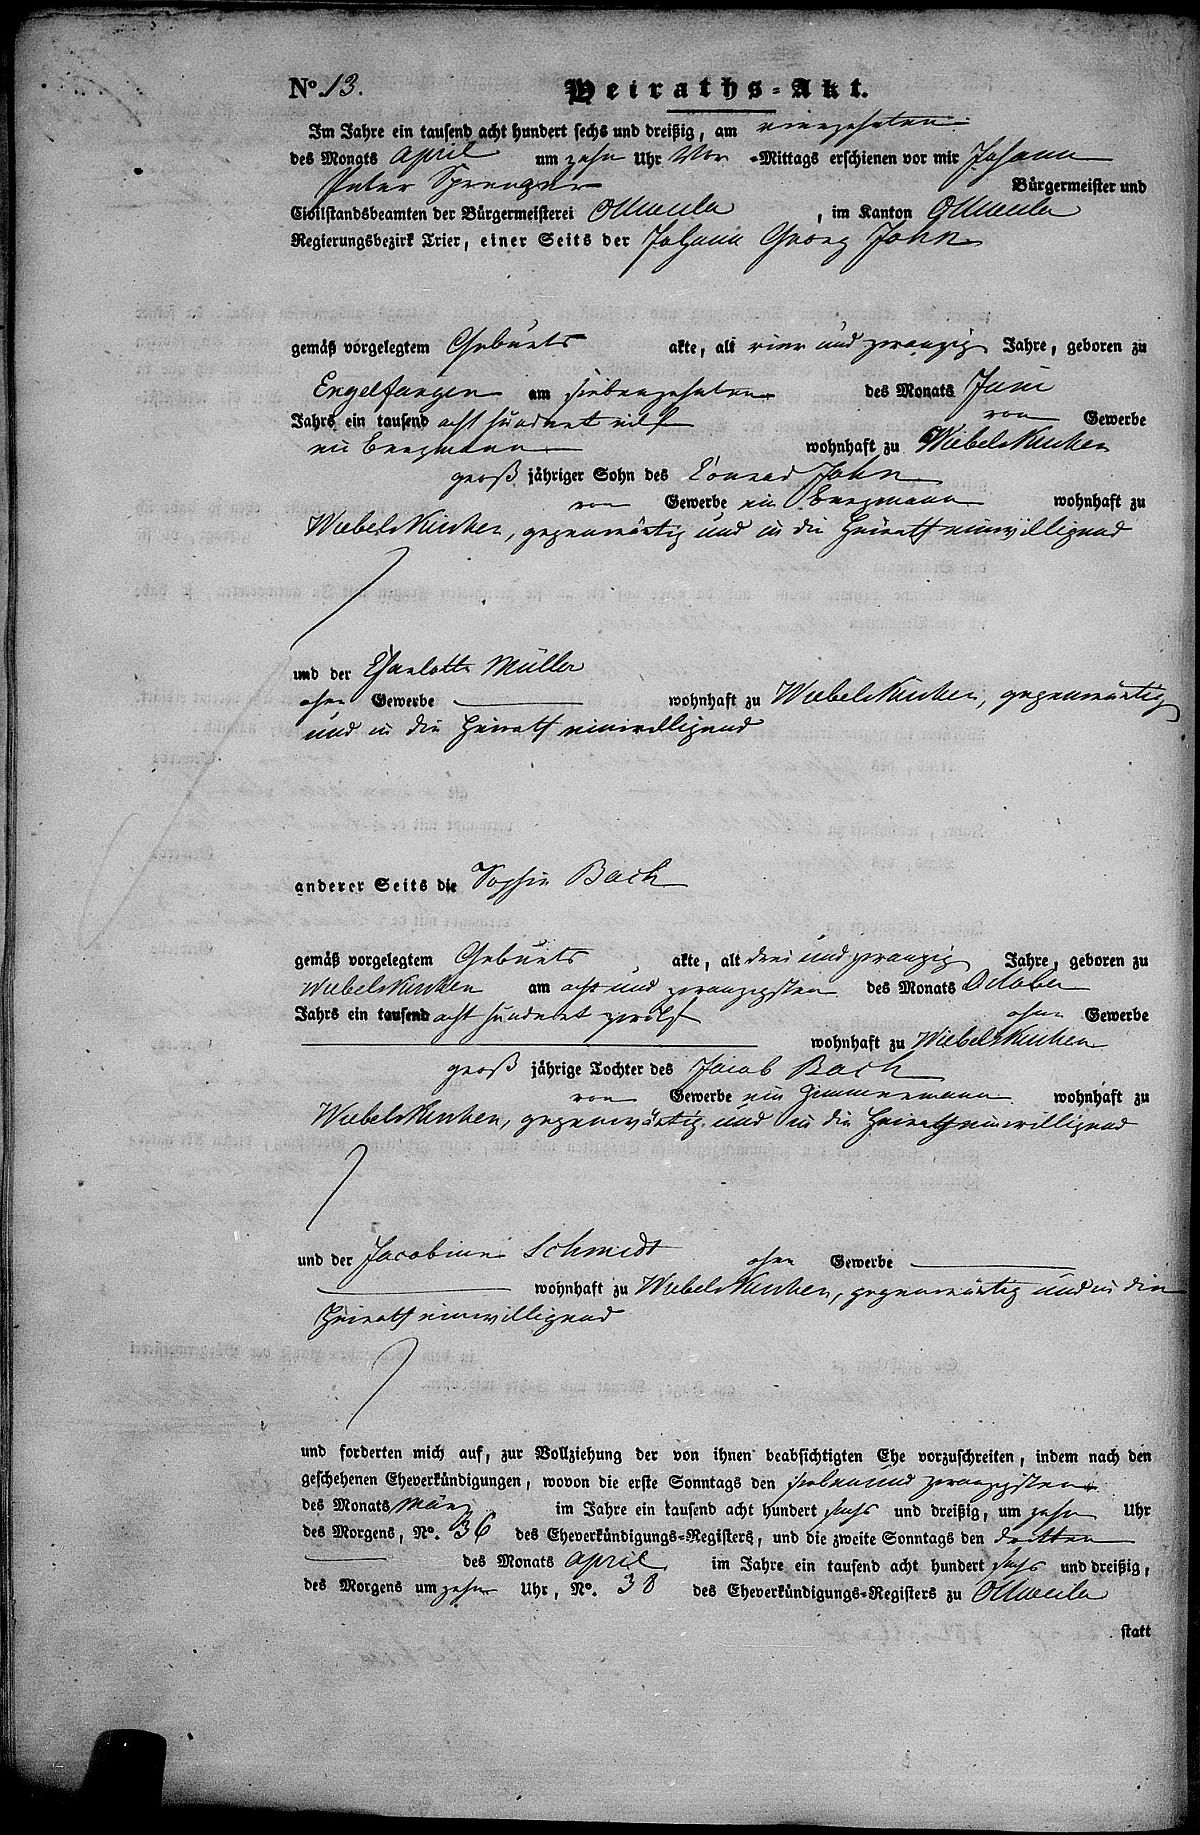 No. 13. Heiraths-Akt.
Im Jahre ein tausend acht hundert sechs und dreißig, am vierzehnten
des Monats April um zehn Uhr Vor-Mittags erschienen vor mir Johann
Peter Sprenger Bürgermeister und
Civilstandsbeamten der Bürgermeisterei Ottweiler, im Kanton Ottweiler
Regierungsbezirk Trier, einer Seits der Johann Georg John
gemäß vorgelegtem Geburts akte, alt vier und zwanzig Jahre, geboren zu
Engelfangen am siebenzehnten des Monats Juni
Jahrs ein tausend acht hundert eilf von Gewerbe
ein Bergmann wohnhaft zu Wiebelskirchen
groß jähriger Sohn des Conrad John
von Gewerbe ein Bergmann wohnhaft zu
Wiebelskirchen, gegenwärtig und in die Heirath einwilligend
und der Charlotte Müller
ohne Gewerbe wohnhaft zu Wiebelskirchen, gegenwärtig
und in die Heirath einwilligend
anderer Seits die Sophie Bach
gemäß vorgelegtem Geburts akte, alt drei und zwanzig Jahre, geboren zu
Wiebelskirchen am acht und zwanzigsten des Monats October
Jahrs ein tausend acht hundert zwölf ohne Gewerbe
wohnhaft zu Wiebelskirchen
groß jährige Tochter des Jacob Bach
von Gewerbe ein Zimmermann wohnhaft zu
Wiebelskirchen, gegenwärtig und in die Heirath einwilligend
und der Jacobine Schmidt ohne Gewerbe
wohnhaft zu Wiebelskirchen, gegenwärtig und in die
Heirath einwilligend
und forderten mich auf, zur Vollziehung der von ihnen beabsichtigten Ehe vorzuschreiten, indem nach den
geschehenen Eheverkündigungen, wovon die erste Sonntags den sieben und zwanzigsten
des Monats März im Jahre ein tausend acht hundert sechs und dreißig, um zehn Uhr
des Morgens, No. 36 des Eheverkündigungs-Registers, und die zweite Sonntags den dritten
des Monats April im Jahre ein tausend acht hundert sechs und dreißig,
des Morgens um zehn Uhr, No. 38 des Eheverkündigungs-Registers zu Ottweiler
statt